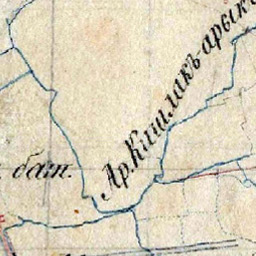 Ар. Кишлакъ-арык
бат.